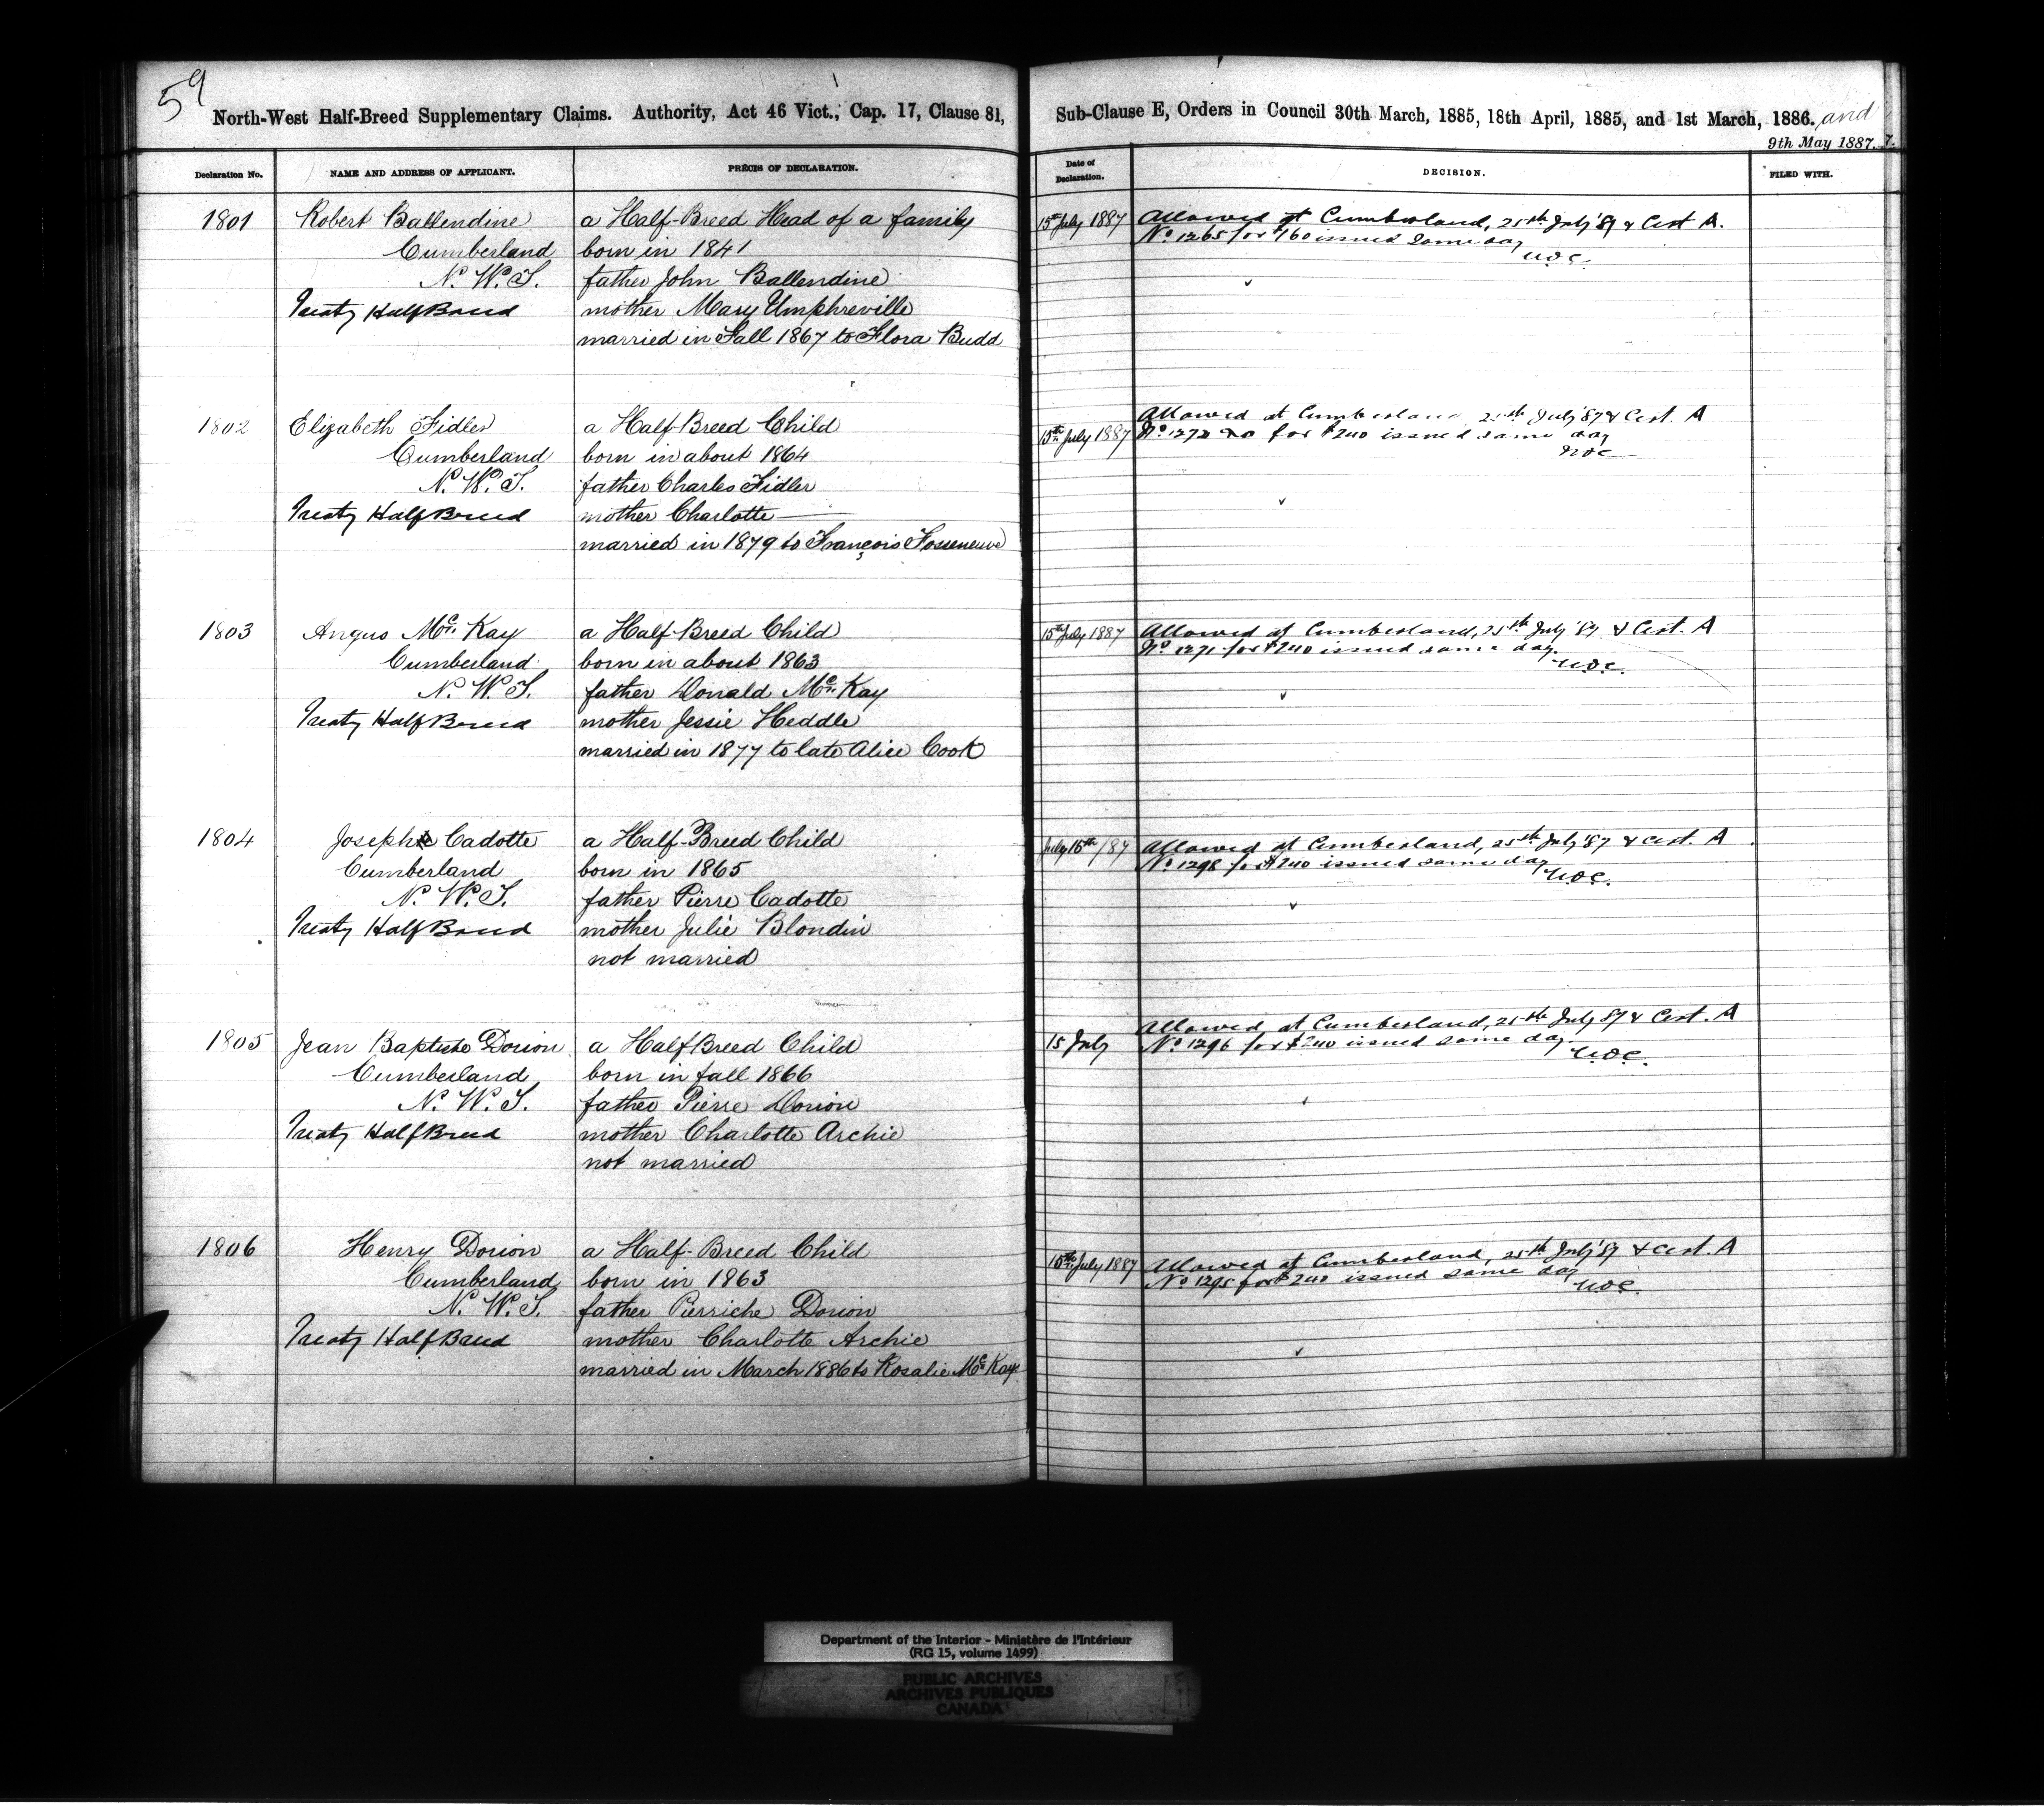 59
North-West Half-Breed Supplementary Claims. Authority, Act 46 Vict., Cap. 17, Clause 81,
Sub-Clause E, Orders in Council 30th March, 1885, 18th April, 1885, and 1st March, 1886. and
9th May 1887.
Declaration No.
NAME AND ADDRESS OF APPLICANT.
PRÉCIS OF DECLARATION.
Date of Declaration.
DECISION.
FILED WITH.
1801
Robert Ballendine
Cumberland
N. W. T.
Treaty Half Breed
a Half-Breed Head of a family
born in 1841
father John Ballendine
mother Mary Umphreville
married in Fall 1867 to Flora Budd
15th July 1887
Allowed at Cumberland, 25th July '87 & Cert. A.
No 1265 for $160 issued same day
1802
Elizabeth Fidler
Cumberland
N. W. T.
Treaty Half Breed
a Half-Breed Child
born in about 1864
father Charles Fidler
mother Charlotte
married in 1879 to François Fosseneuve
15th July 1887
Allowed at Cumberland 25th July '87 & Cert. A
No 1272 for $240 issued same day
1803
Angus Mc Kay
Cumberland
N. W. T.
Treaty Half Breed
a Half-Breed Child
born in about 1863
father Donald Mc Kay
mother Jessie Heddle
married in 1877 to late Alice Cook
15th July 1887
Allowed at Cumberland, 25th July '87 & Cert. A
No 1271 for $240 issued same day.
1804
Joseph Cadotte
Cumberland
N. W. T.
Treaty Half Breed
a Half-Breed Child
born in 1865
father Pierre Cadotte
mother Julie Blondin
not married
July 15th /87
Allowed at Cumberland, 25th July '87 & Cert. A
No 1298 for $240 issued same day
1805
Jean Baptiste Dorion
Cumberland
N. W. T.
Treaty Half Breed
a Half Breed Child
born in fall 1866
father Pierre Dorion
mother Charlotte Archie
not married
15 July
Allowed at Cumberland, 25th July 87 & Cert. A
No 1296 for $240 issued same day
1806
Henry Dorion
Cumberland
N. W. T.
Treaty Half Breed
a Half-Breed Child
born in 1863
father Pierriche Dorion
mother Charlotte Archie
married in March 1886 to Rosalie Mc Kay
15th July 1887
Allowed at Cumberland, 25th July '87 & Cert. A
No 1295 for $240 issued same day
Department of the Interior - Ministère de l'Intérieur
(RG 15, volume 1499)
PUBLIC ARCHIVES
ARCHIVES PUBLIQUES
CANADA